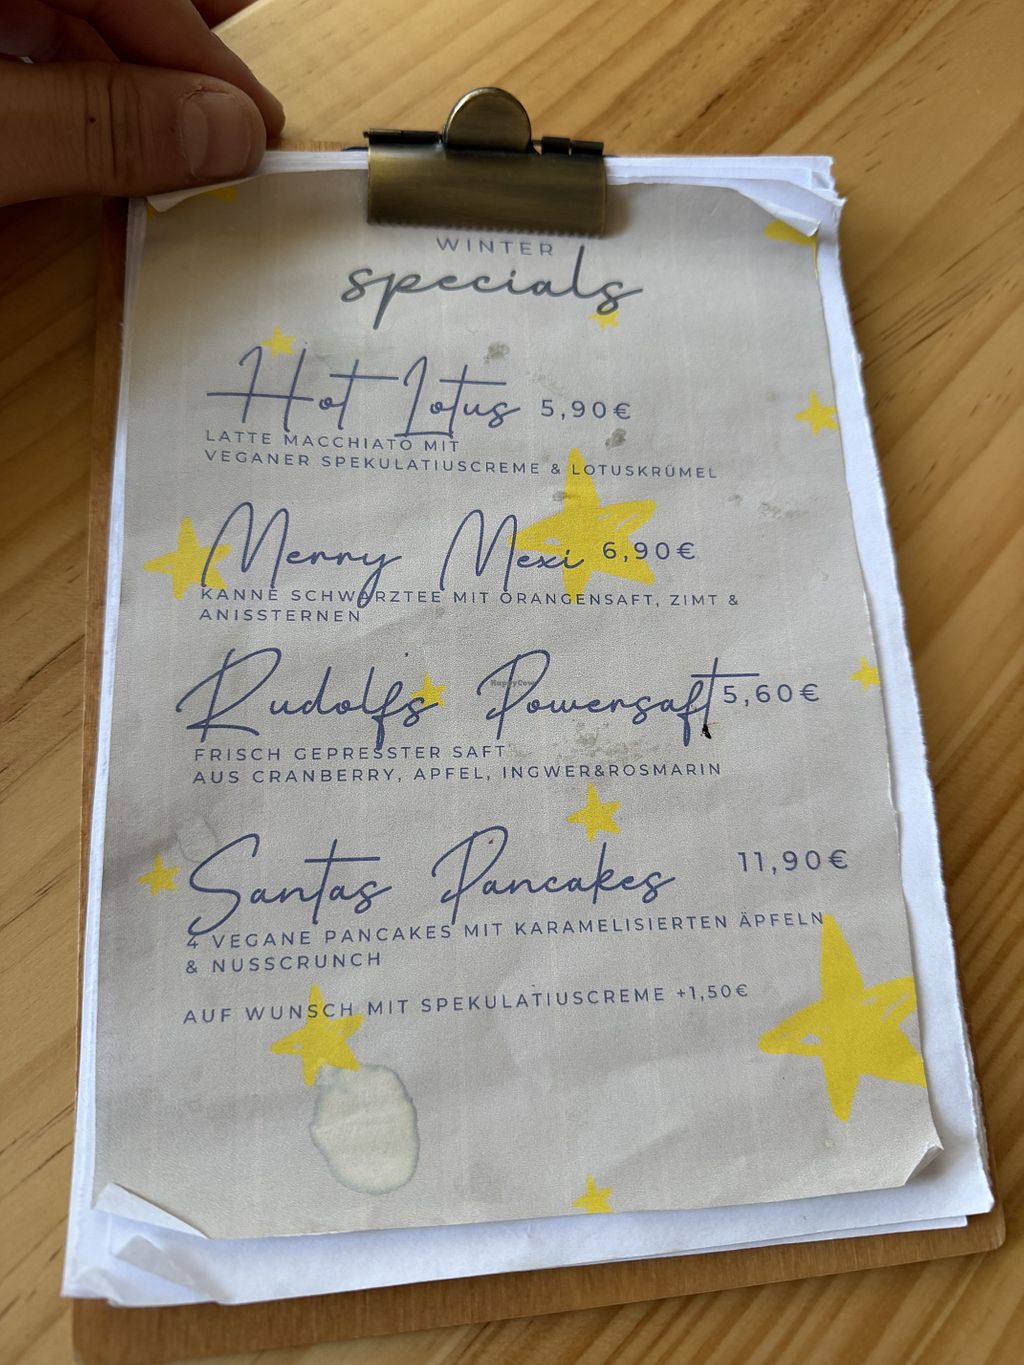 WINTER
specials
Hot Lotus 5,90€
LATTE MACCHIATO MIT
VEGANER SPEKULATIUSCREME & LOTUSKRÜMEL
Merry Mexi 6,90€
KANNE SCHWARZTEE MIT ORANGENSAFT, ZIMT &
ANISSTERNEN
HappyCow
Rudolfs Powersaft 5,60€
FRISCH GEPRESSTER SAFT
AUS CRANBERRY, APFEL, INGWER&ROSMARIN
Santas Pancakes 11,90€
4 VEGANE PANCAKES MIT KARAMELISIERTEN ÄPFELN
& NUSSCRUNCH
AUF WUNSCH MIT SPEKULATIUSCREME +1,50€